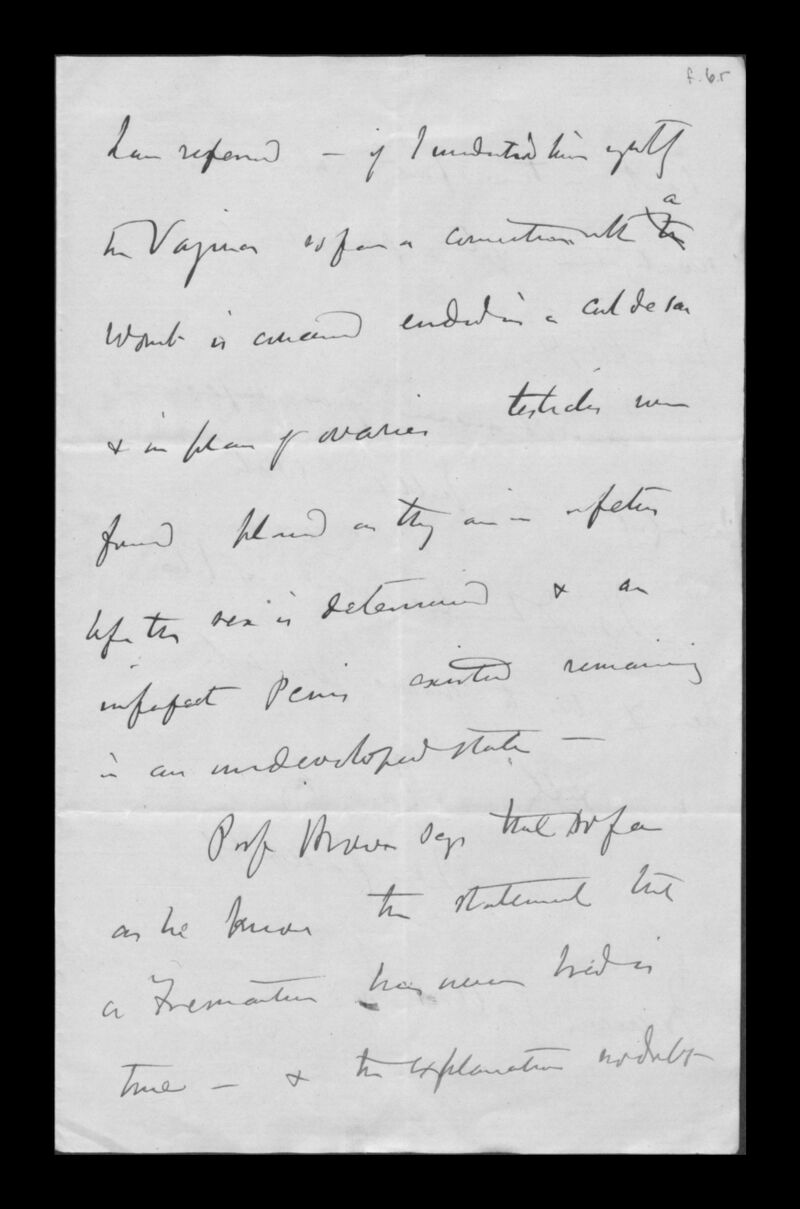 f.6.r
have referred — if I understood him rightly
the Vagina so far as connection with a the
Womb is concerned ended in a cul de sac
& in place of ovaries testicles were
found placed as they are in a fetus
before the sex is determined & an
imperfect Penis existed remaining
in an undeveloped state —
Prof Brown says that so far
as he knows the statement that
a Freemartin has never bred is
true — & the explanation no doubt